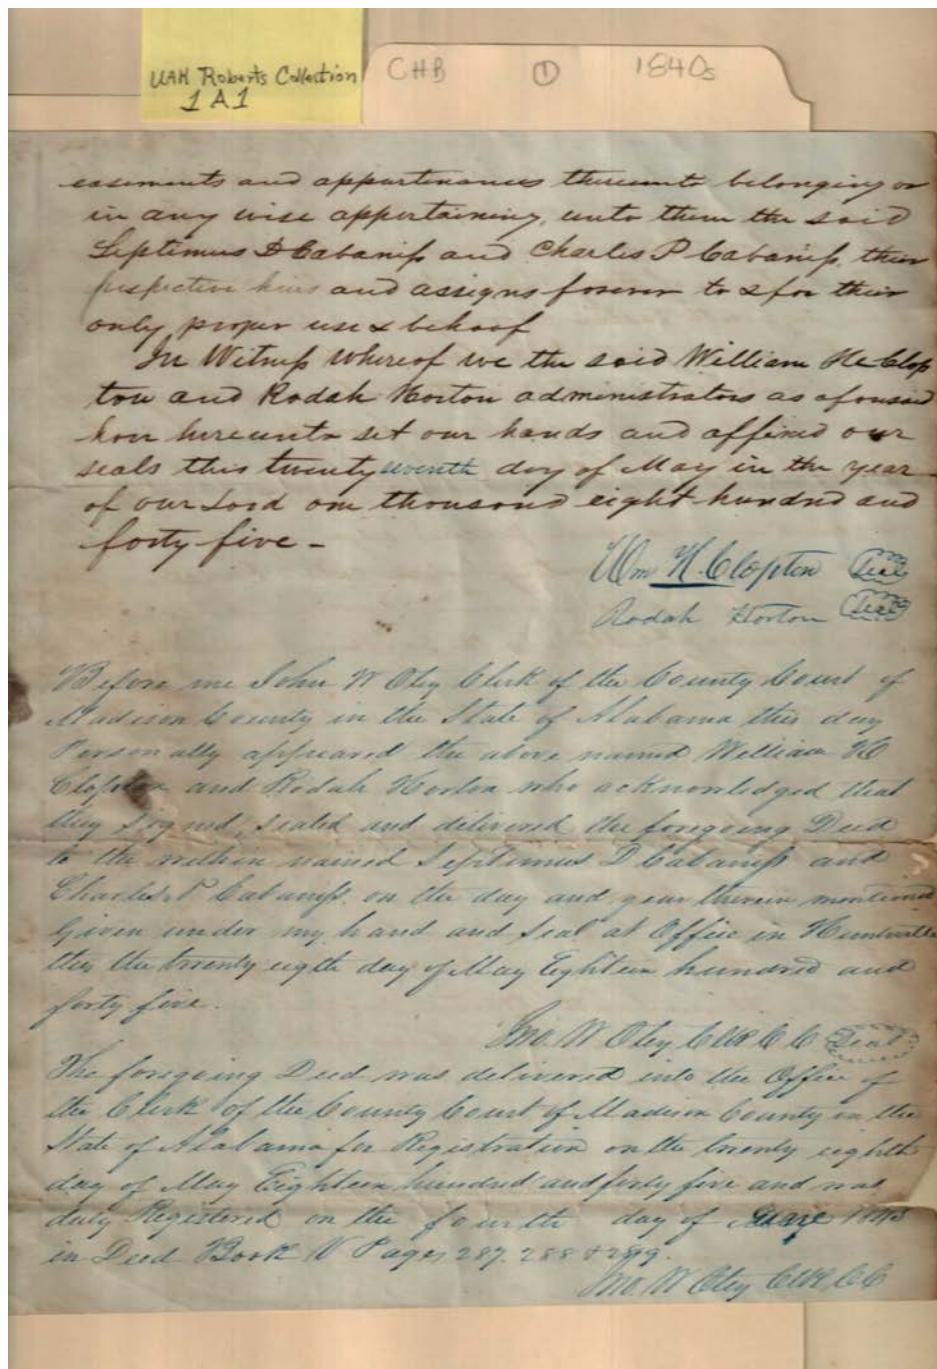 UAH Roberts Collection
1 A 1
CHB 1 1840s
easements and appurtenances thereunto belonging or
in any wise appertaining, unto them the said
Septimus D Cabaniss and Charles P Cabaniss, their
respective heirs and assigns forever to & for their
only proper use & behoof
In Witness Whereof we the said William H Clop
ton and Rodah Horton administrators as aforesaid
have hereunto set our hands and affixed our
seals this twenty seventh day of May in the year
of our Lord one thousand eight hundred and
forty five -
Wm H. Clopton Seal
Rodah Horton Seal
Before me John W Otey Clerk of the County Court of
Madison County in the State of Alabama this day
Personally appeared the above named William H
Clopton and Rodah Horton who acknowledged that
they signed, sealed and delivered the foregoing Deed
to the within named Septimus D Cabaniss and
Charles P Cabaniss. on the day and year therein mentioned
Given under my hand and seal at Office in Huntsville
this the twenty eigth day of May Eighteen hundred and
forty five.
Jno. W Otey Clk C C Seal
The foregoing Deed was delivered into the Office of
the Clerk of the County Court of Madison County in the
State of Alabama for Registration on the twenty eighth
day of May Eighteen hundred and forty five and was
duly Registered on the fourth day of June 1845
in Deed Book V Pages 287. 288 & 289.
Jno. W Otey Clk, C C